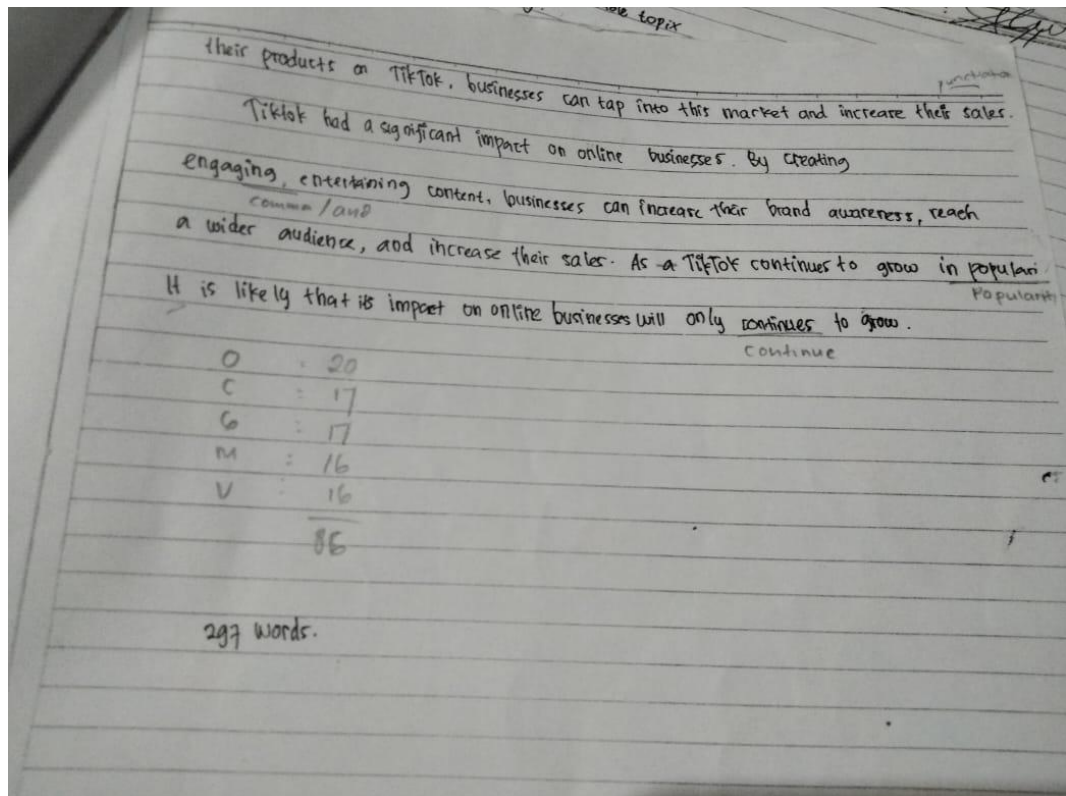 topix
punctuation
their products on TikTok, businesses can tap into this market and increase their sales.
Tiktok had a significant impact on online businesses. By creating
engaging, entertaining content, businesses can increase their brand awareness, reach
comma / and
a wider audience, and increase their sales. As a TikTok continues to grow in populari
Popularity
It is likely that its impact on online businesses will only continues to grow.
continue
O : 20
C : 17
G : 17
M : 16
V : 16
86
297 words.